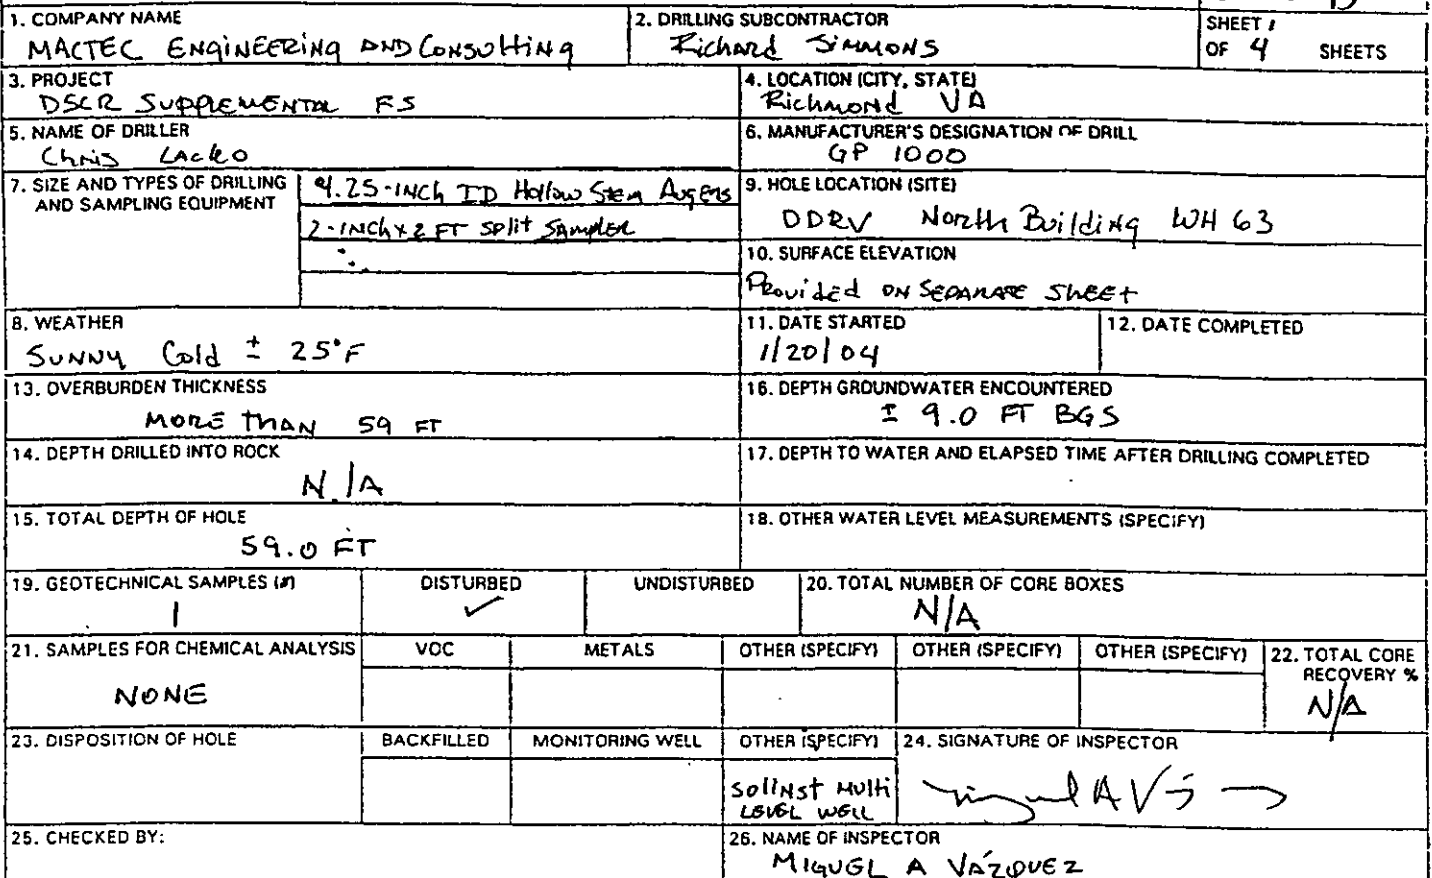 1. COMPANY NAME
MACTEC ENGINEERING AND CONSULTING
2. DRILLING SUBCONTRACTOR
Richard Simmons
SHEET 1
OF 4 SHEETS
3. PROJECT
DSCR SUPPLEMENTAL FS
4. LOCATION (CITY, STATE)
Richmond VA
5. NAME OF DRILLER
Chris Lacko
6. MANUFACTURER'S DESIGNATION OF DRILL
GP 1000
7. SIZE AND TYPES OF DRILLING
AND SAMPLING EQUIPMENT
4.25-INCH ID Hollow Stem Augers
2-INCH x 2 FT Split Sampler
9. HOLE LOCATION (SITE)
DDRV North Building WH 63
10. SURFACE ELEVATION
Provided on Separate Sheet
8. WEATHER
Sunny Cold ± 25°F
11. DATE STARTED
1/20/04
12. DATE COMPLETED
13. OVERBURDEN THICKNESS
MORE THAN 59 FT
16. DEPTH GROUNDWATER ENCOUNTERED
± 9.0 FT BGS
14. DEPTH DRILLED INTO ROCK
N/A
17. DEPTH TO WATER AND ELAPSED TIME AFTER DRILLING COMPLETED
15. TOTAL DEPTH OF HOLE
59.0 FT
18. OTHER WATER LEVEL MEASUREMENTS (SPECIFY)
19. GEOTECHNICAL SAMPLES (#)
1
DISTURBED
✓
UNDISTURBED
20. TOTAL NUMBER OF CORE BOXES
N/A
21. SAMPLES FOR CHEMICAL ANALYSIS
NONE
VOC
METALS
OTHER (SPECIFY)
OTHER (SPECIFY)
OTHER (SPECIFY)
22. TOTAL CORE
RECOVERY %
N/A
23. DISPOSITION OF HOLE
BACKFILLED
MONITORING WELL
OTHER (SPECIFY)
Solinst Multi
LEVEL WELL
24. SIGNATURE OF INSPECTOR
25. CHECKED BY:
26. NAME OF INSPECTOR
MIGUEL A VÁZQUEZ